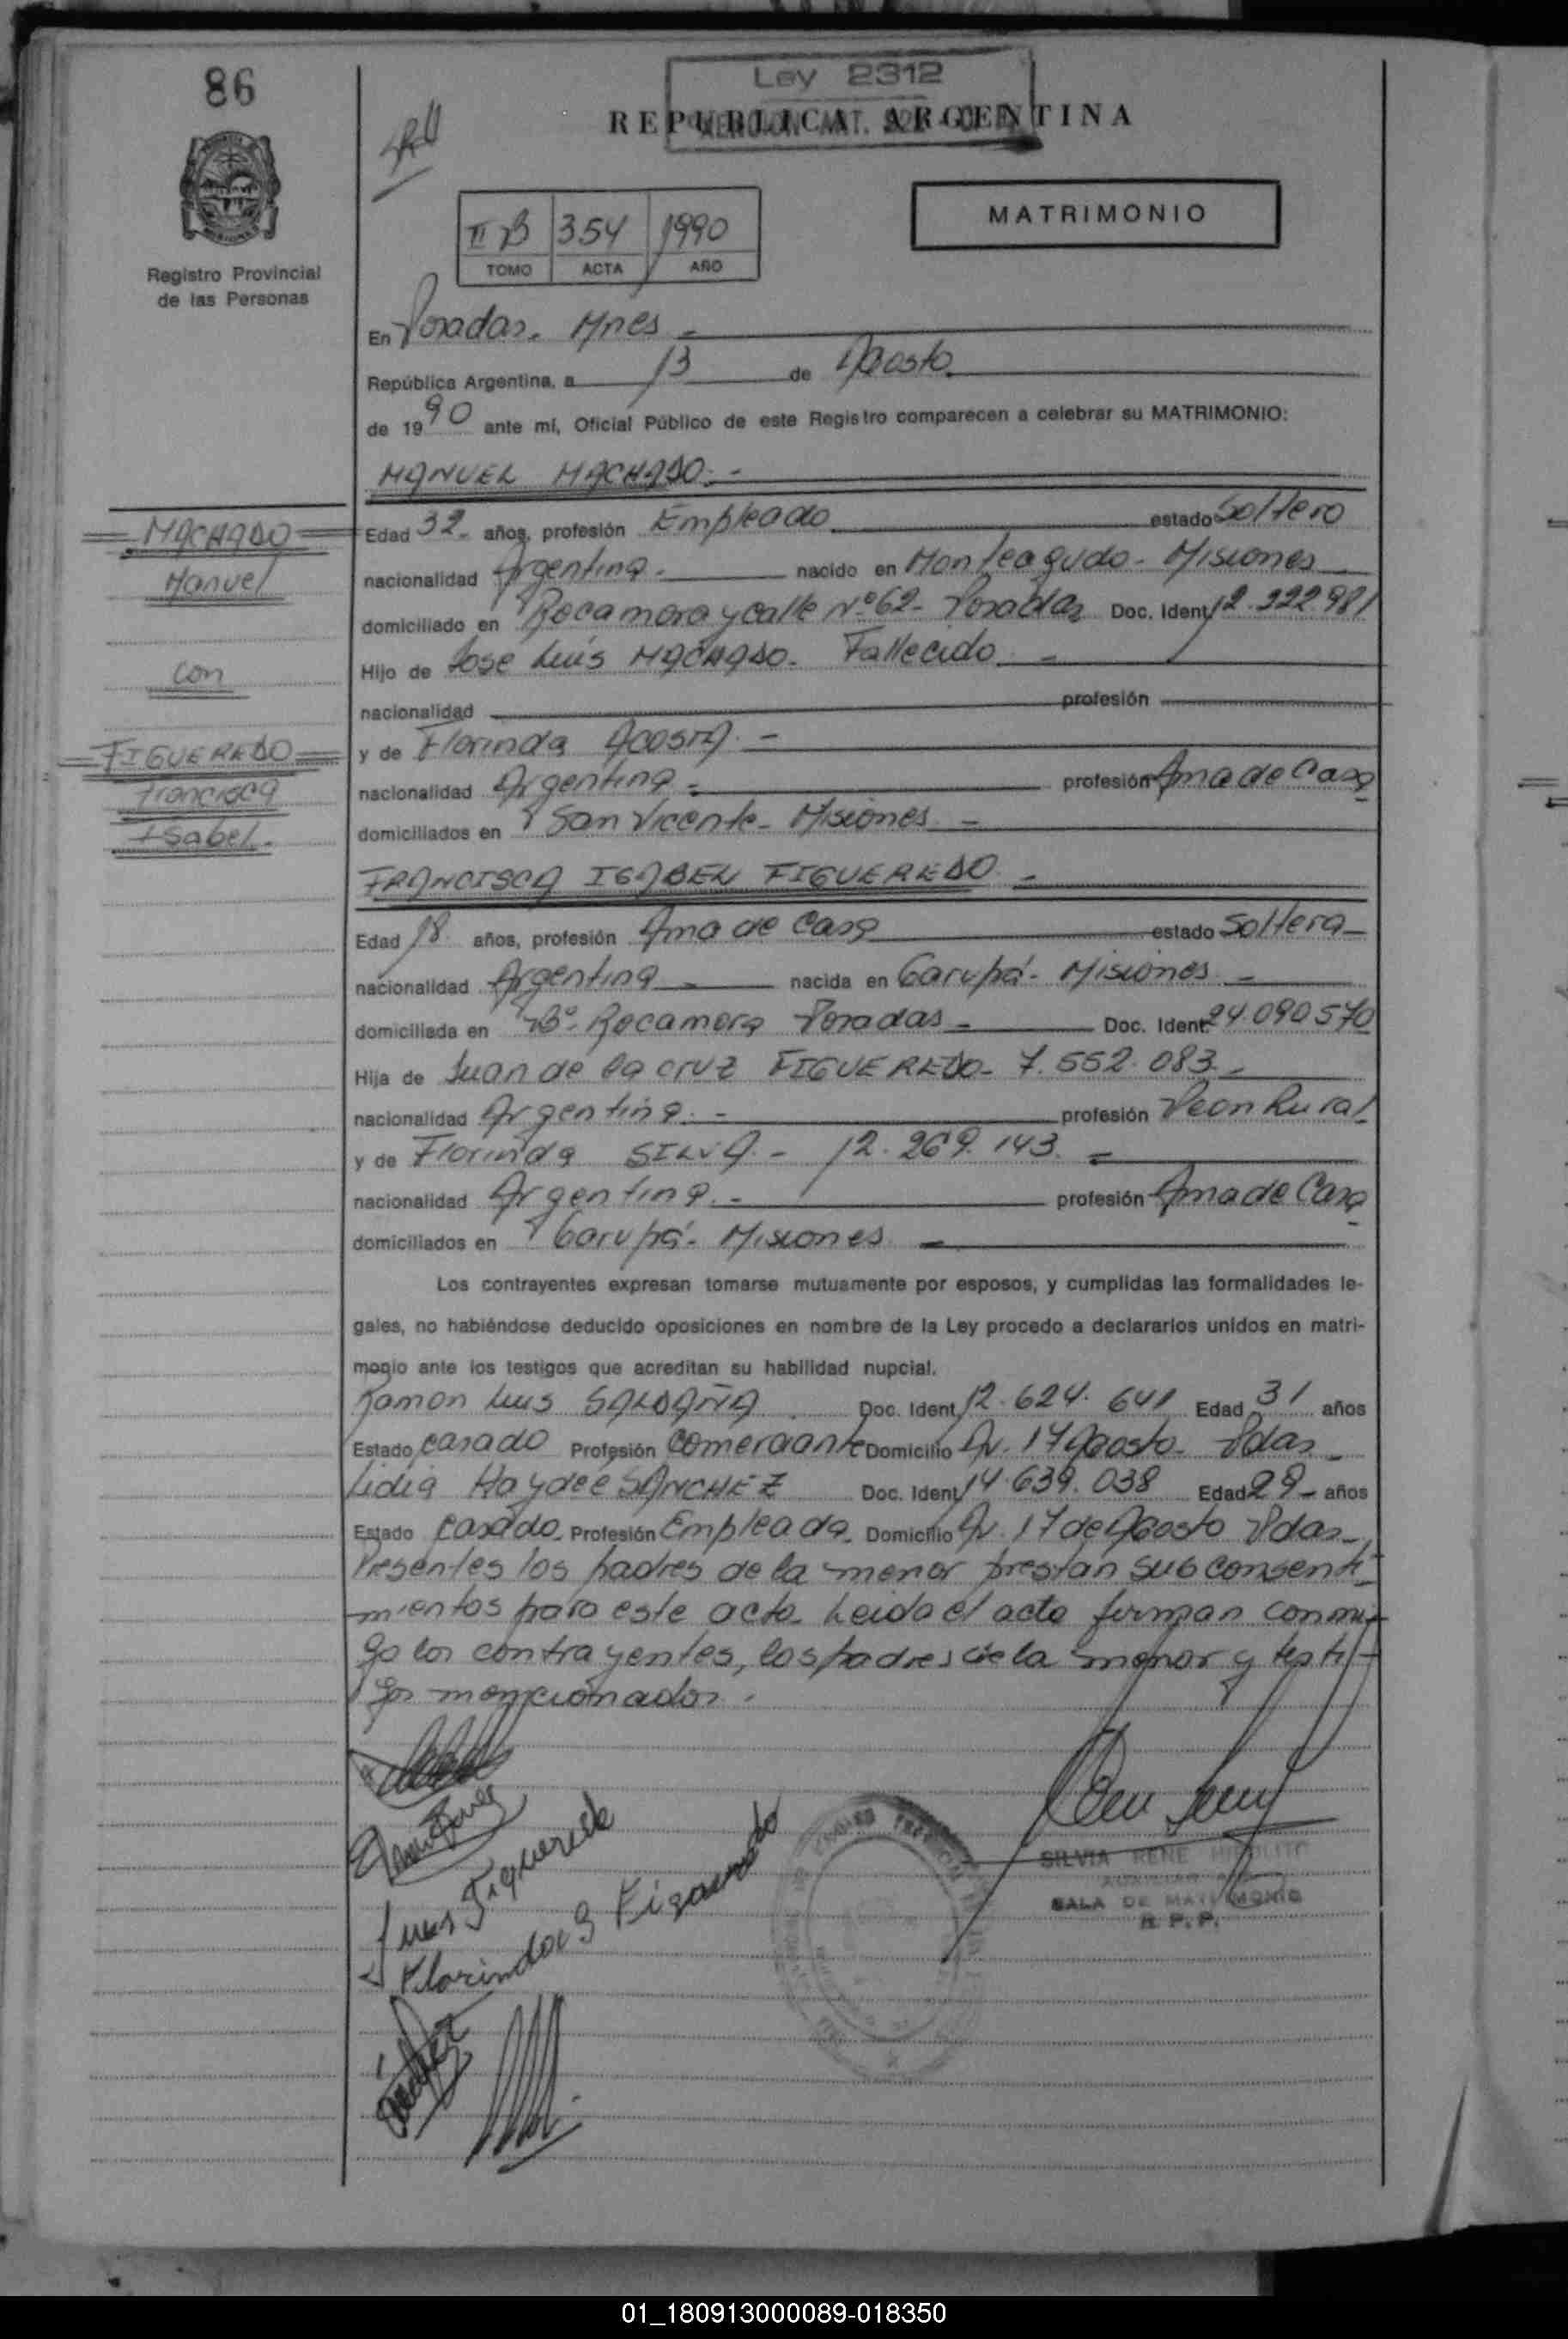 86
Ley 2312
REPUBLICA ARGENTINA
MATRIMONIO
II B 354 1990
TOMO ACTA AÑO
Registro Provincial
de las Personas
En Posadas. Mnes -
República Argentina, a 13 de Agosto
de 1990 ante mí, Oficial Público de este Registro comparecen a celebrar su MATRIMONIO:
MANUEL MACHADO. -
MACHADO
Manuel
con
FIGUEREDO
Francisca
Isabel.
Edad 32- años, profesión Empleado estado Soltero
nacionalidad Argentina. nacido en Monteagudo - Misiones
domiciliado en Rocamora y calle Nº 62 - Posadas Doc. Ident 12.222.981
Hijo de Jose Luis MACHADO. Fallecido -
nacionalidad profesión
y de Florinda ACOSTA. -
nacionalidad Argentina - profesión Ama de Casa
domiciliados en San Vicente - Misiones -
FRANCISCA ISABEL FIGUEREDO. -
Edad 18. años, profesión Ama de Casa estado Soltera
nacionalidad Argentina - nacida en Garupá - Misiones -
domiciliada en Bº Rocamora Posadas - Doc. Ident 24.090570
Hija de Juan de la cruz FIGUEREDO - 7.552.083 -
nacionalidad Argentina. - profesión Peon Rural
y de Florinda SILVA. - 12.269.143. -
nacionalidad Argentina. - profesión Ama de Casa
domiciliados en Garupá - Misiones -
Los contrayentes expresan tomarse mutuamente por esposos, y cumplidas las formalidades le-
gales, no habiéndose deducido oposiciones en nombre de la Ley procedo a declararlos unidos en matri-
monio ante los testigos que acreditan su habilidad nupcial.
Ramon Luis SALDAÑA Doc. Ident 12.624.641 Edad 31 años
Estado casado Profesión Comerciante Domicilio Av. 17 Agosto - Pdas
Lidia Haydee SANCHEZ Doc. Ident 14.639.038 Edad 29 - años
Estado casado Profesión Empleada Domicilio Av. 17 de Agosto Pdas
Presentes los padres de la menor prestan sus consenti-
mientos para este acto. Leida el acta firman conmi-
go los contrayentes, los padres de la menor y testi-
gos mencionados.
Juan Figueredo
Florinda S Figueredo
SILVIA RENE HIPOLITO
SALA DE MATRIMONIO
R. P. P.
01_180913000089-018350